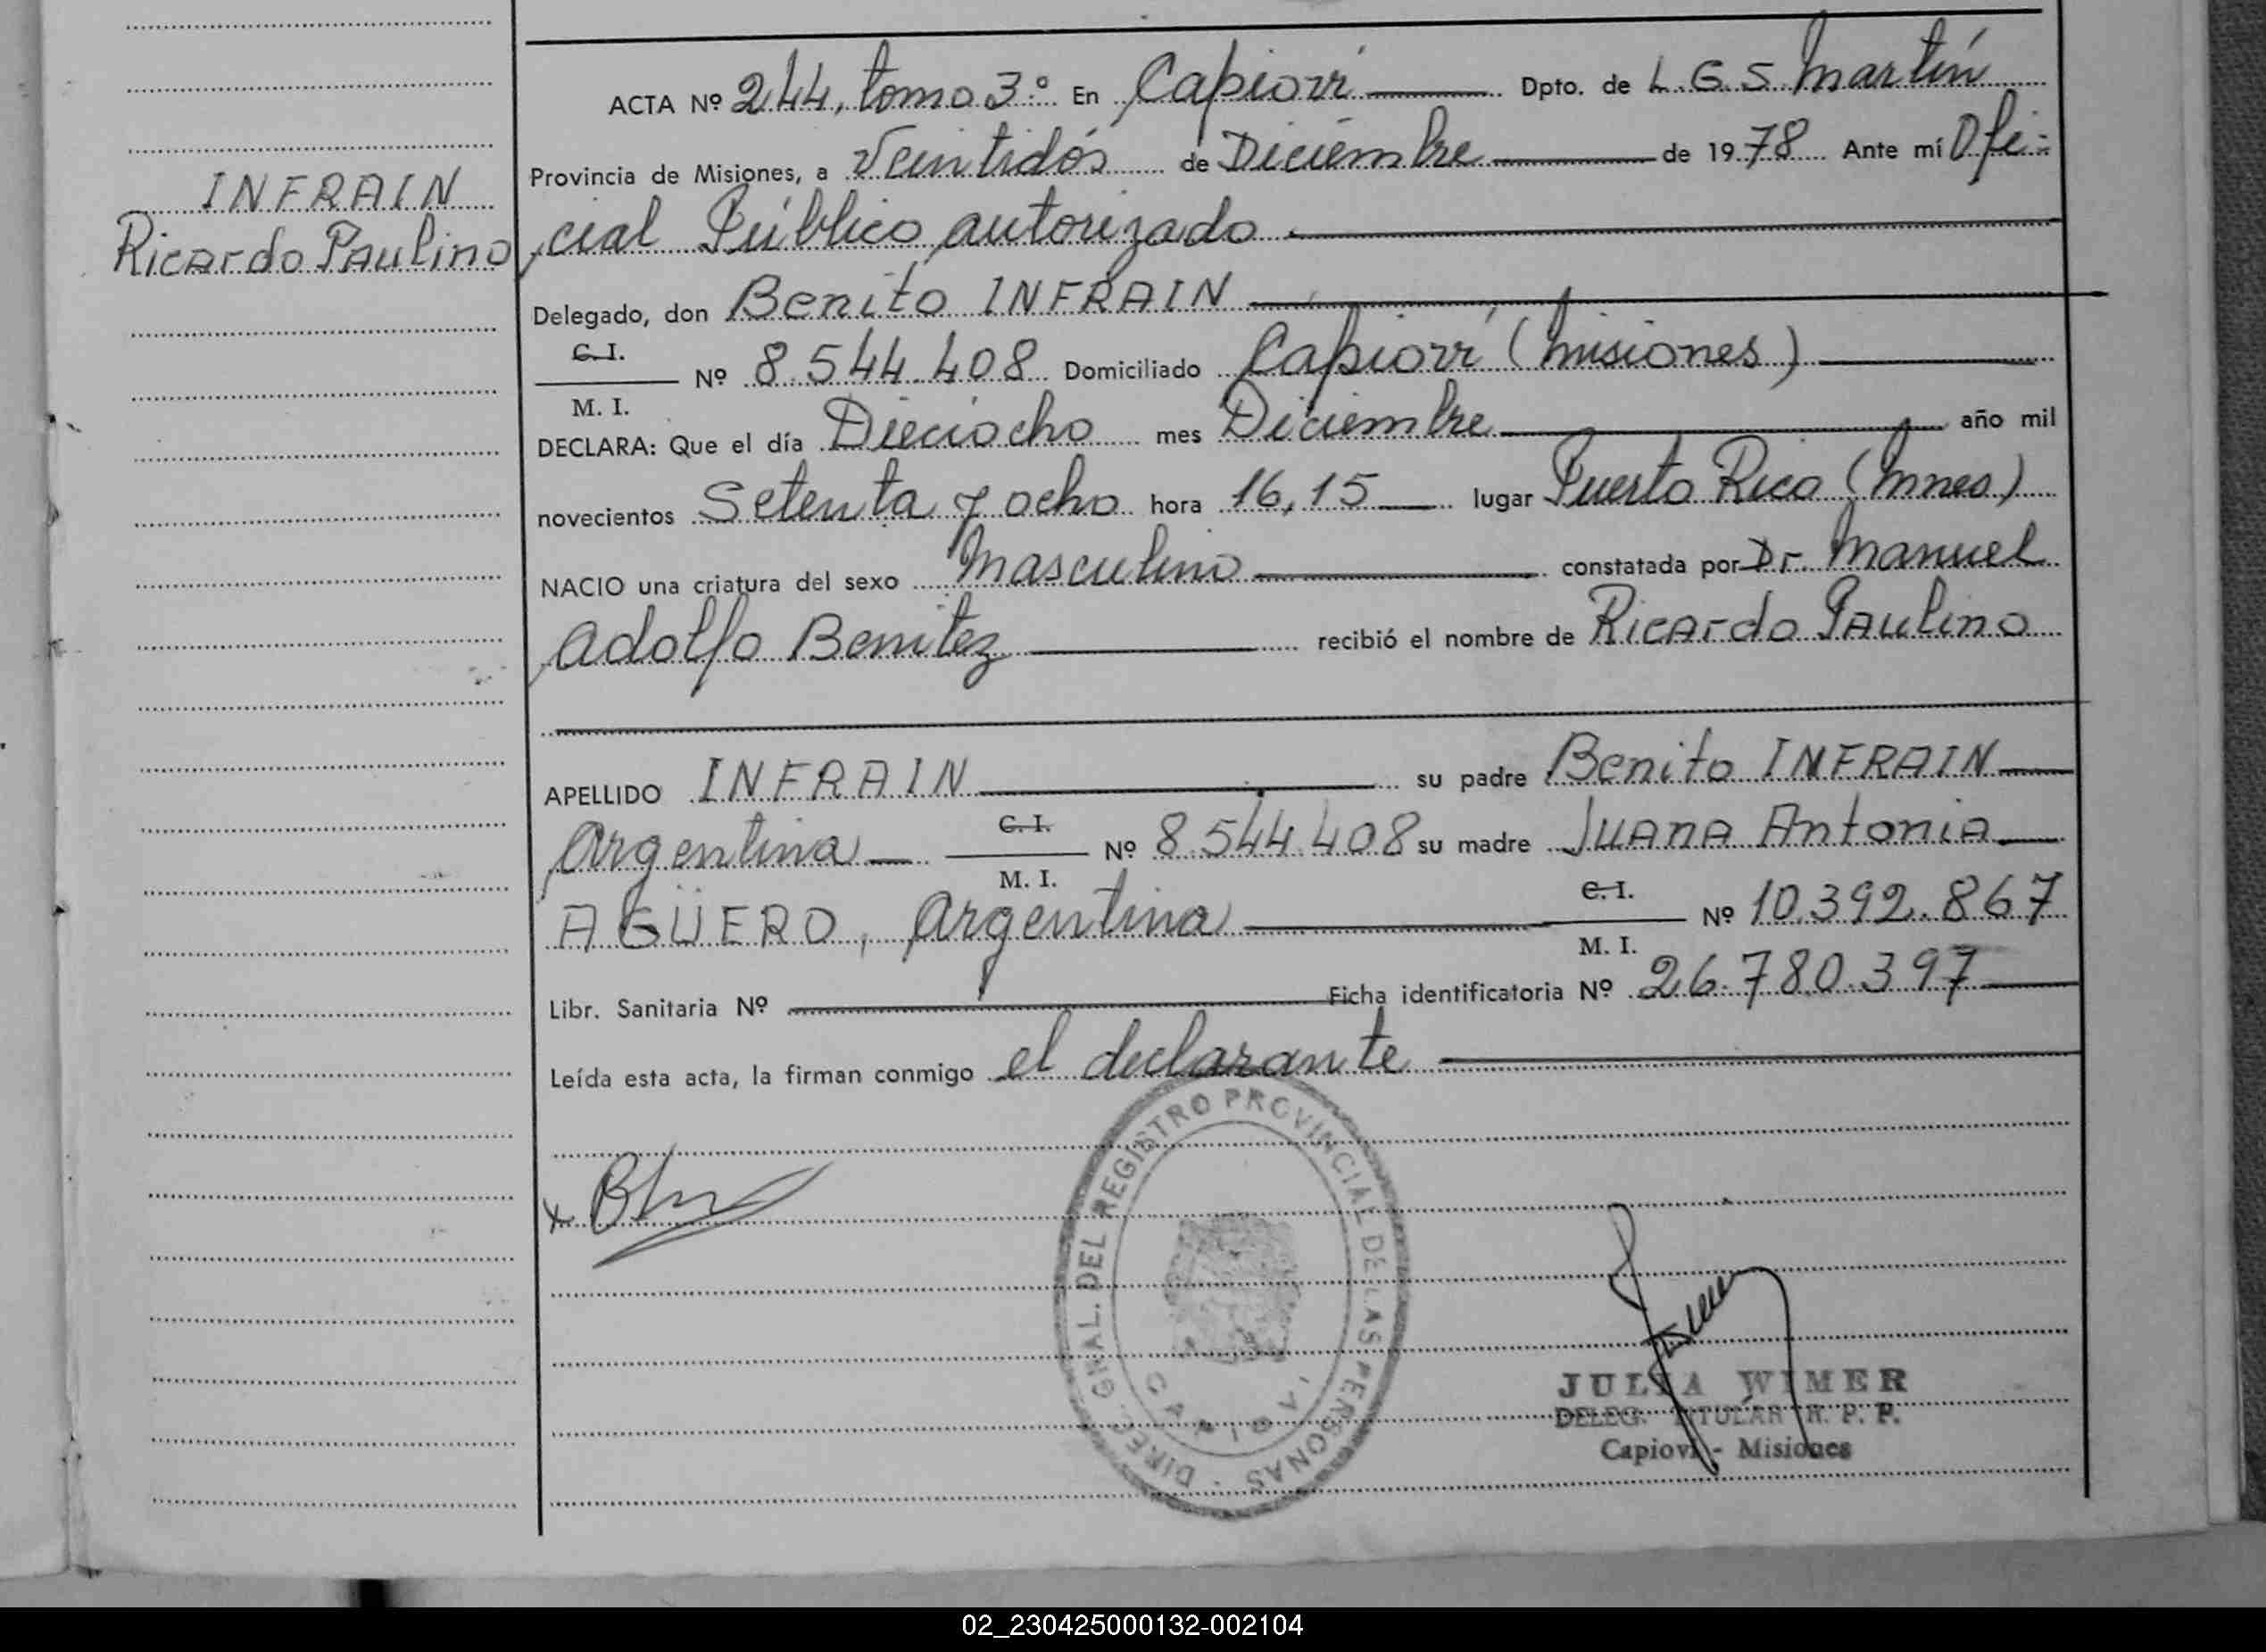 INFRAIN
Ricardo Paulino
ACTA Nº 244, tomo 3.º En Capioví Dpto. de L.G.S. Martín
Provincia de Misiones, a Veintidós de Diciembre de 1978 Ante mí Ofi-
cial Público autorizado.
Delegado, don Benito INFRAIN
C. I.
Nº 8.544.408 Domiciliado Capioví (Misiones)
M. I.
DECLARA: Que el día Dieciocho mes Diciembre año mil
novecientos Setenta y ocho hora 16,15 lugar Puerto Rico (Mnes)
NACIO una criatura del sexo Masculino constatada por Dr. Manuel
Adolfo Benitez recibió el nombre de Ricardo Paulino
APELLIDO INFRAIN su padre Benito INFRAIN
C. I.
Argentina Nº 8.544.408 su madre Juana Antonia
M. I.
C. I.
AGÜERO, Argentina Nº 10.392.867
M. I.
Libr. Sanitaria Nº Ficha identificatoria Nº 26.780.397
Leída esta acta, la firman conmigo el declarante
DIREC. GRAL. DEL REGISTRO PROVINCIAL DE LAS PERSONAS
CAPIOVI
JULIA WIMER
DELEG. TITULAR R. P. P.
Capioví - Misiones
02_230425000132-002104